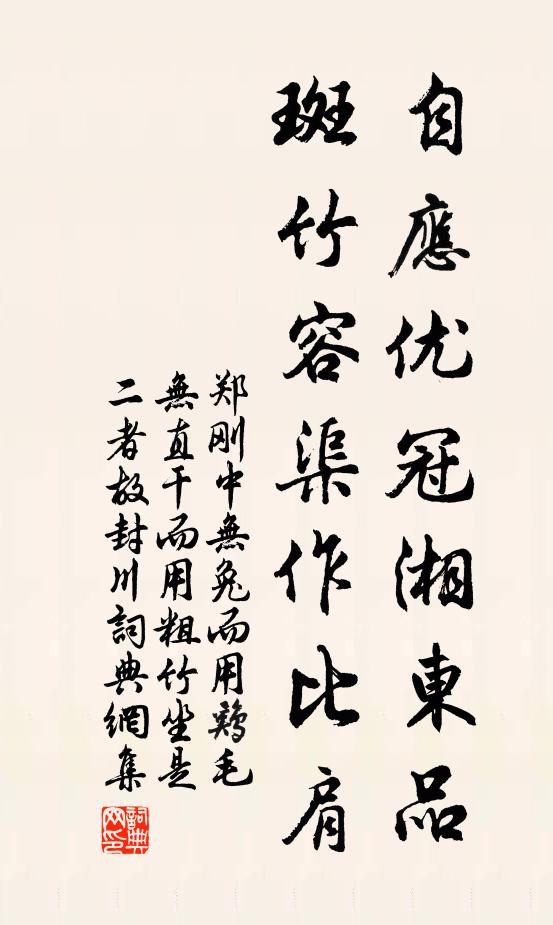 自應优冠湘東品
斑竹容渠作比肩
郑刚中無兔而用鷄毛
無直干而用粗竹坐是
二者故封川詞典網集
詞典網印